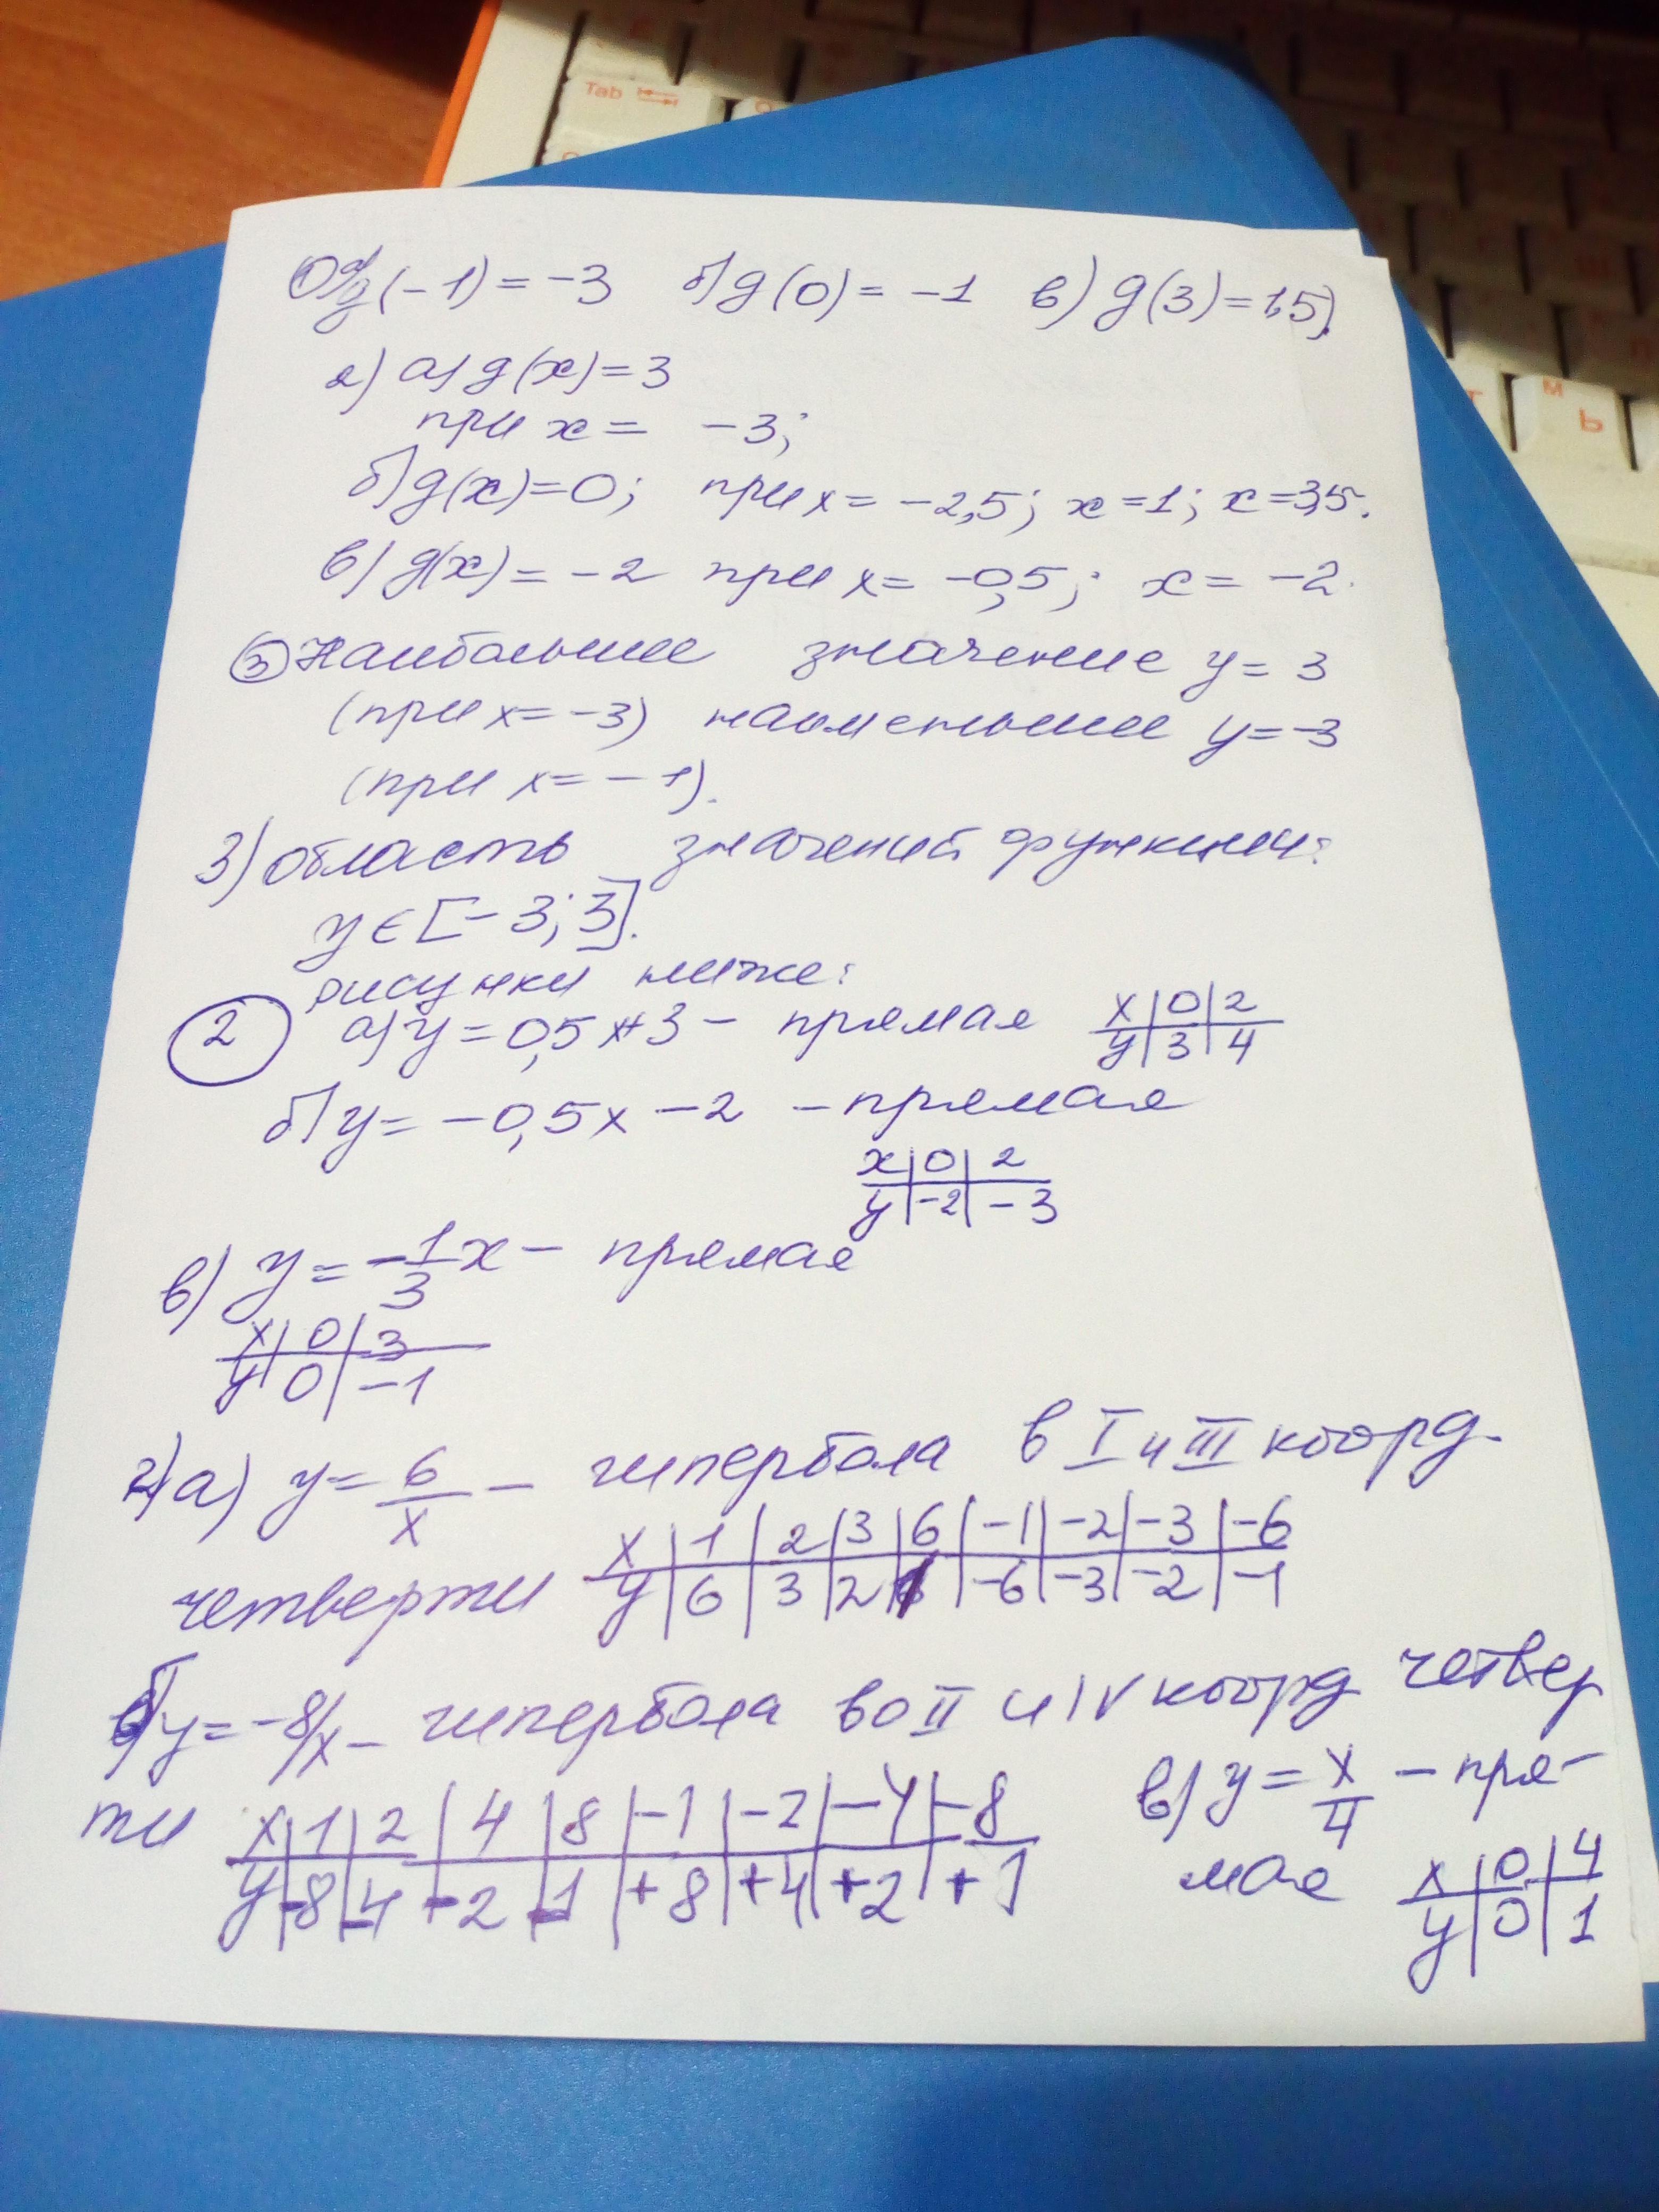 Tab
М
Ь
1) а) g(-1) = -3 б) g(0) = -1 в) g(3) = 1,5).
2) а) g(x) = 3
при x = -3;
б) g(x) = 0; при x = -2,5; x = 1; x = 3,5.
в) g(x) = -2 при x = -0,5; x = -2.
3) Наибольшее значение y = 3
(при x = -3) наименьшее y = -3
(при x = -1).
3) область значений функции:
y ∈ [-3; 3].
рисунки ниже:
2 а) y = 0,5x + 3 - прямая x | 0 | 2
y | 3 | 4
б) y = -0,5x - 2 - прямая
x | 0 | 2
y | -2 | -3
в) y = -1/3 x - прямая
x | 0 | 3
y | 0 | -1
2) а) y = 6/x - гипербола в I и III коорд.
четверти x | 1 | 2 | 3 | 6 | -1 | -2 | -3 | -6
y | 6 | 3 | 2 | 1 | -6 | -3 | -2 | -1
б) y = -8/x - гипербола во II и IV коорд четвер
ти x | 1 | 2 | 4 | 8 | -1 | -2 | -4 | -8
y | -8 | -4 | -2 | -1 | +8 | +4 | +2 | +1
в) y = x/4 - пря-
мая x | 0 | 4
y | 0 | 1